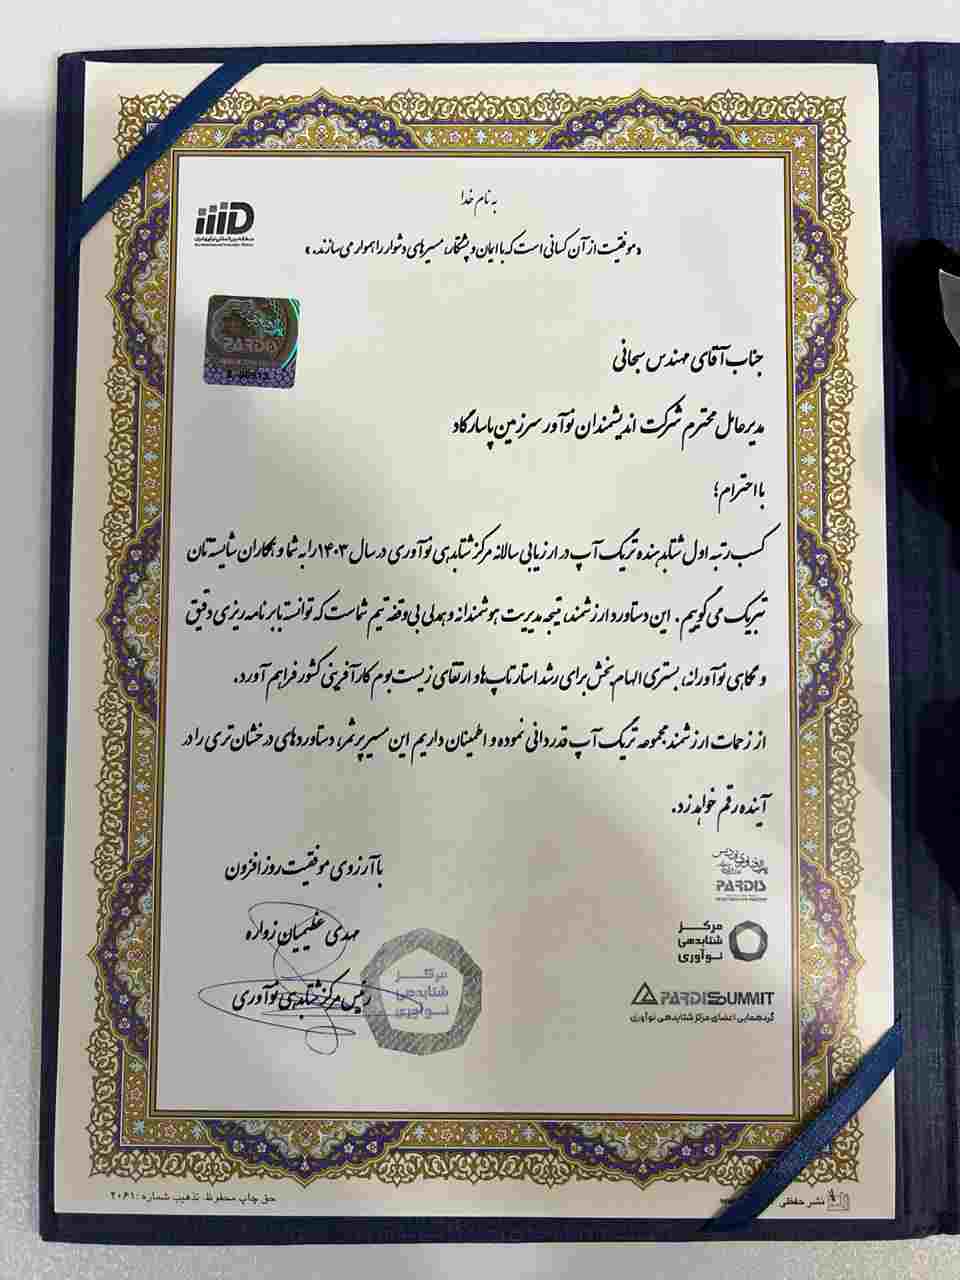 به نام خدا
«موفقیت از آن کسانی است که با ایمان و پشتکار، مسیرهای دشوار را هموار می‌سازند.»
PARDIS
جناب آقای مهندس سبحانی
مدیرعامل محترم شرکت اندیشمندان نوآور سرزمین پاسارگاد
با احترام؛
کسب رتبه اول شتابدهنده تریگ آپ در ارزیابی سالانه مرکز شتابدهی نوآوری در سال ۱۴۰۳ را به شما و همکاران شایسته‌تان
تبریک می‌گوییم. این دستاورد ارزشمند، نتیجه مدیریت هوشمندانه و همدلی بی‌وقفه تیم شماست که توانسته با برنامه‌ریزی دقیق
و نگاهی نوآورانه، بستری الهام‌بخش برای رشد استارتاپ‌ها و ارتقای زیست‌بوم کارآفرینی کشور فراهم آورد.
از زحمات ارزشمند مجموعه تریگ آپ قدردانی نموده و اطمینان داریم این مسیر پرثمر، دستاوردهای درخشان‌تری را در
آینده رقم خواهد زد.
با آرزوی موفقیت روزافزون
مهدی عظیمیان زواره
رئیس مرکز شتابدهی نوآوری
مرکز
شتابدهی
نوآوری
PARDIS
مرکز
شتابدهی
نوآوری
PARDIS SUMMIT
گردهمایی اعضای مرکز شتابدهی نوآوری
حق چاپ محفوظ. تذهیب شماره: ۲۰۶۱
نشر حفظی